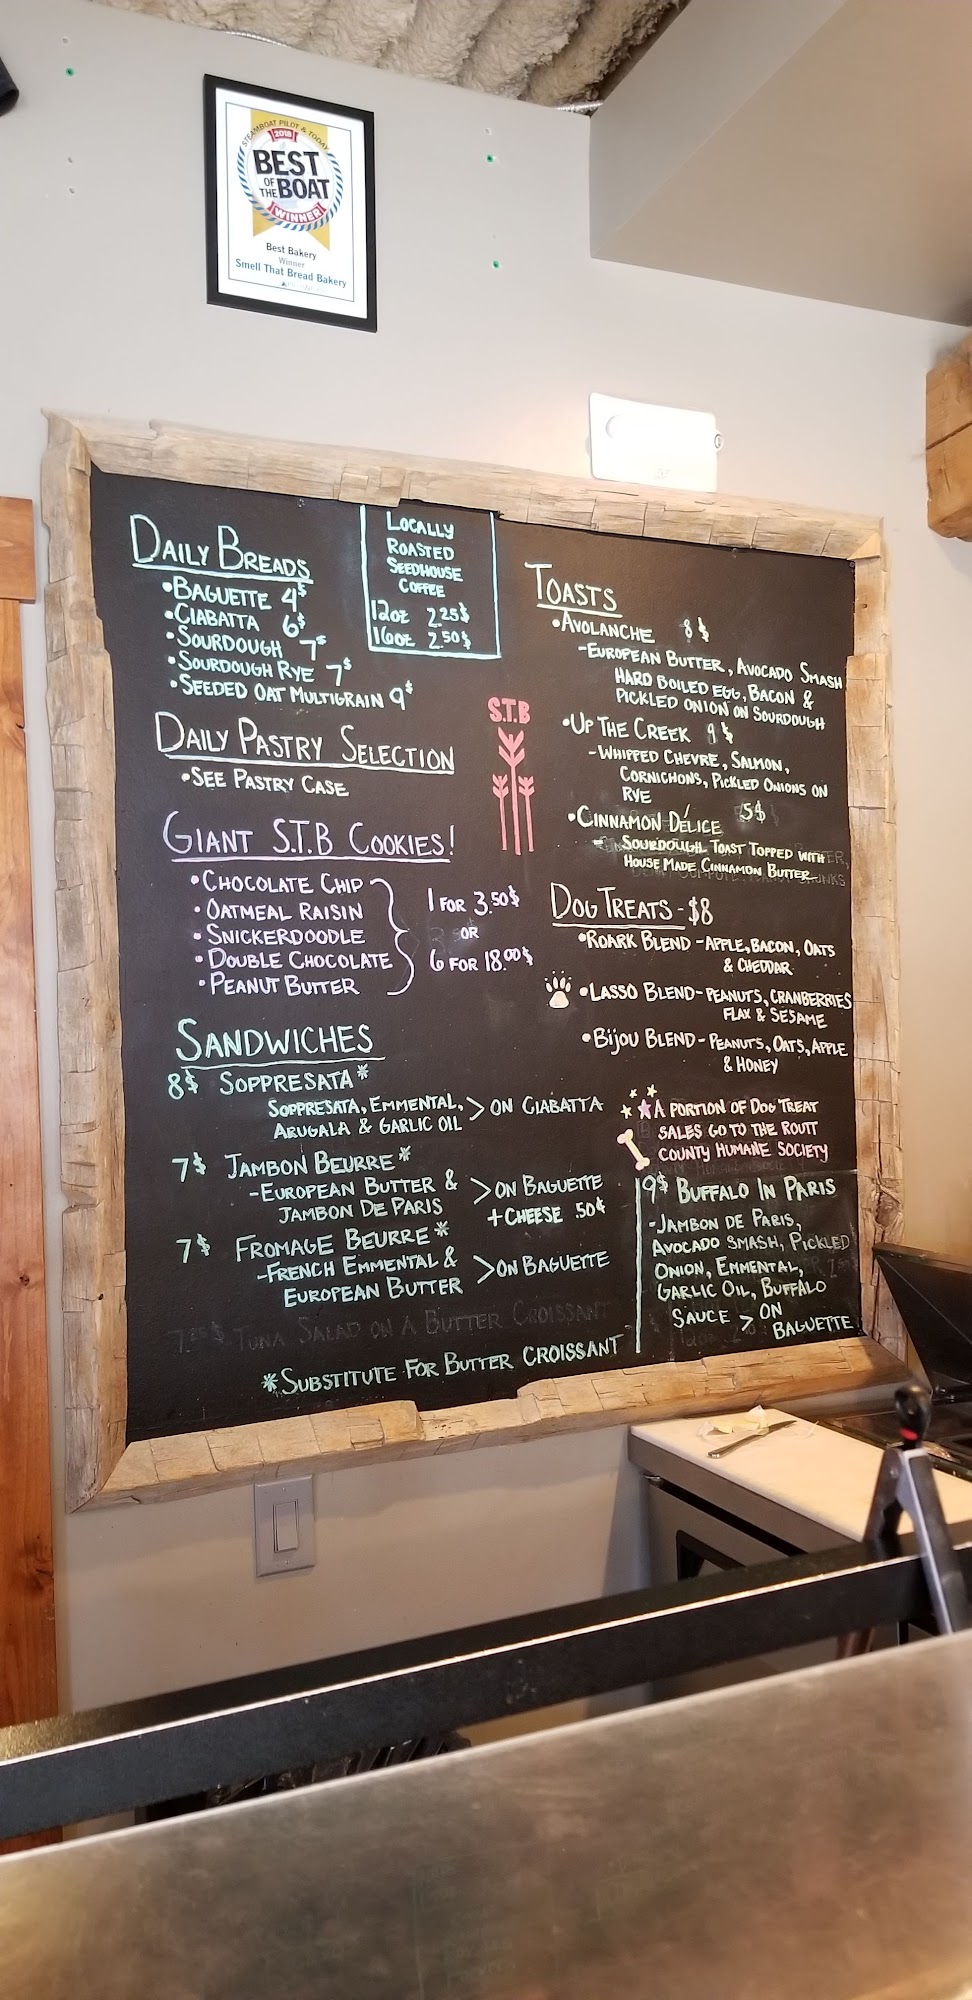 STEAMBOAT PILOT & TODAY
2018
BEST
OF THE BOAT
WINNER
Best Bakery
Winner
Smell That Bread Bakery
DAILY BREADS
•BAGUETTE 4$
•CIABATTA 6$
•SOURDOUGH 7$
•SOURDOUGH RYE 7$
•SEEDED OAT MULTIGRAIN 9$
LOCALLY
ROASTED
SEEDHOUSE
COFFEE
12oz 2.25$
16oz 2.50$
DAILY PASTRY SELECTION
•SEE PASTRY CASE
GIANT S.T.B COOKIES!
•CHOCOLATE CHIP
•OATMEAL RAISIN
•SNICKERDOODLE
•DOUBLE CHOCOLATE
•PEANUT BUTTER
1 FOR 3.50$
OR
6 FOR 18.00$
SANDWICHES
8$ SOPPRESATA*
SOPPRESATA, EMMENTAL, > ON CIABATTA
ARUGALA & GARLIC OIL
7$ JAMBON BEURRE*
-EUROPEAN BUTTER & > ON BAGUETTE
JAMBON DE PARIS + CHEESE .50¢
7$ FROMAGE BEURRE*
-FRENCH EMMENTAL & > ON BAGUETTE
EUROPEAN BUTTER
TUNA SALAD ON A BUTTER CROISSANT
*SUBSTITUTE FOR BUTTER CROISSANT
S.T.B
TOASTS
•AVOLANCHE 8$
-EUROPEAN BUTTER, AVOCADO SMASH
HARD BOILED EGG, BACON &
PICKLED ONION ON SOURDOUGH
•UP THE CREEK 9$
-WHIPPED CHEVRE, SALMON,
CORNICHONS, PICKLED ONIONS ON
RYE
•CINNAMON DÉLICE 5$
- SOURDOUGH TOAST TOPPED WITH
HOUSE MADE CINNAMON BUTTER
DOG TREATS - $8
•ROARK BLEND - APPLE, BACON, OATS
& CHEDDAR
•LASSO BLEND - PEANUTS, CRANBERRIES
FLAX & SESAME
•BIJOU BLEND - PEANUTS, OATS, APPLE
& HONEY
A PORTION OF DOG TREAT
SALES GO TO THE ROUTT
COUNTY HUMANE SOCIETY
9$ BUFFALO IN PARIS
-JAMBON DE PARIS,
AVOCADO SMASH, PICKLED
ONION, EMMENTAL,
GARLIC OIL, BUFFALO
SAUCE > ON
BAGUETTE